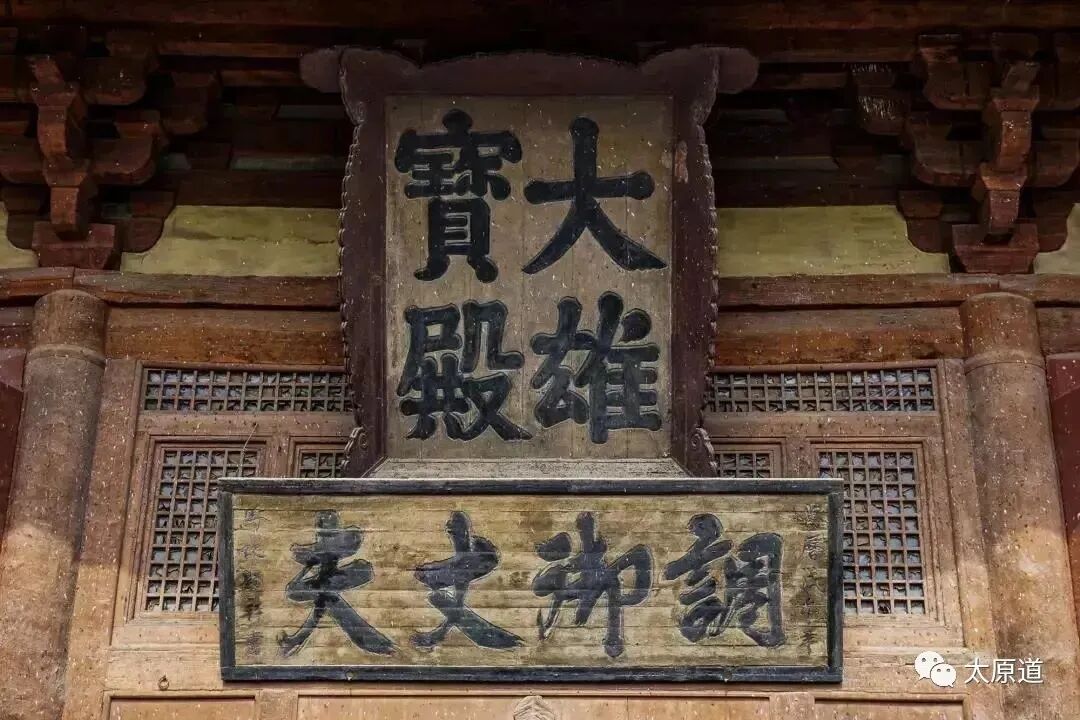 大雄
寶殿
調御丈夫
太原道